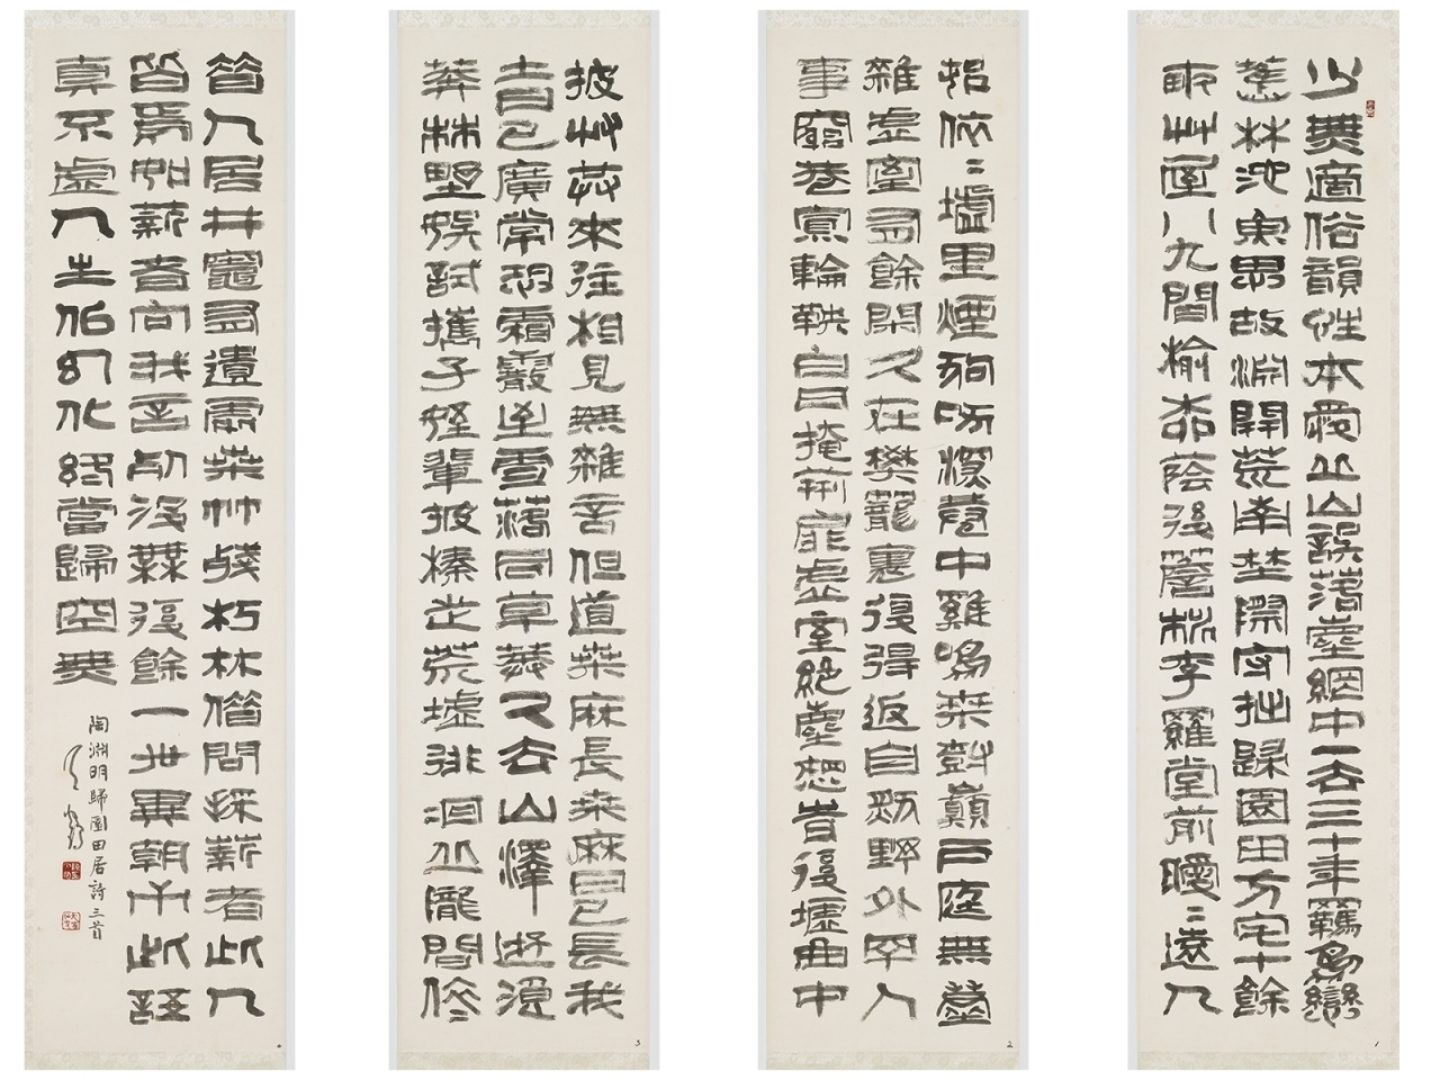 少無適俗韻性本愛丘山誤落塵網中一去三十年羈鳥戀
舊林池魚思故淵開荒南埜際守拙歸園田方宅十餘
畝艸屋八九間榆柳蔭後簷桃李羅堂前曖〻遠人
邨依〻墟里煙狗吠深巷中雞鳴桑樹巔戶庭無塵
雜虛室有餘閑久在樊籠裏復得返自然野外罕人
事窮巷寡輪鞅白日掩荊扉虛室絕塵想時復墟曲中
披艸共來往相見無雜言但道桑麻長桑麻日已長我
土日已廣常恐霜霰至零落同草莽久去山澤遊浪
莽林野娛試攜子姪輩披榛步荒墟徘徊丘隴間依〻
昔人居井竈有遺處桑竹殘朽林借問採薪者此人
皆焉如薪者向我言死沒無復餘一世異朝市此語
真不虛人生似幻化終當歸空無
陶淵明歸園田居詩三首